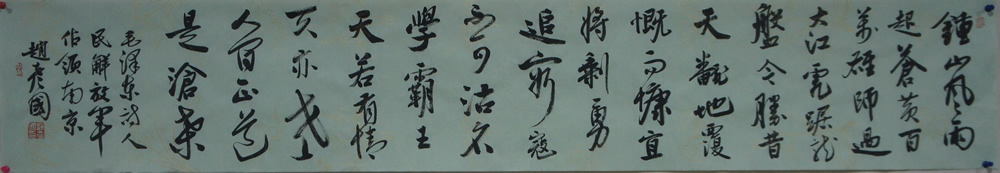 鍾山風雨
起蒼黃百
萬雄師過
大江虎踞龍
盤今勝昔
天翻地覆
慨而慷宜
將剩勇
追窮寇
不可沽名
學霸王
天若有情
天亦老
人間正道
是滄桑
毛澤東詩人
民解放軍
佔領南京
趙彥國